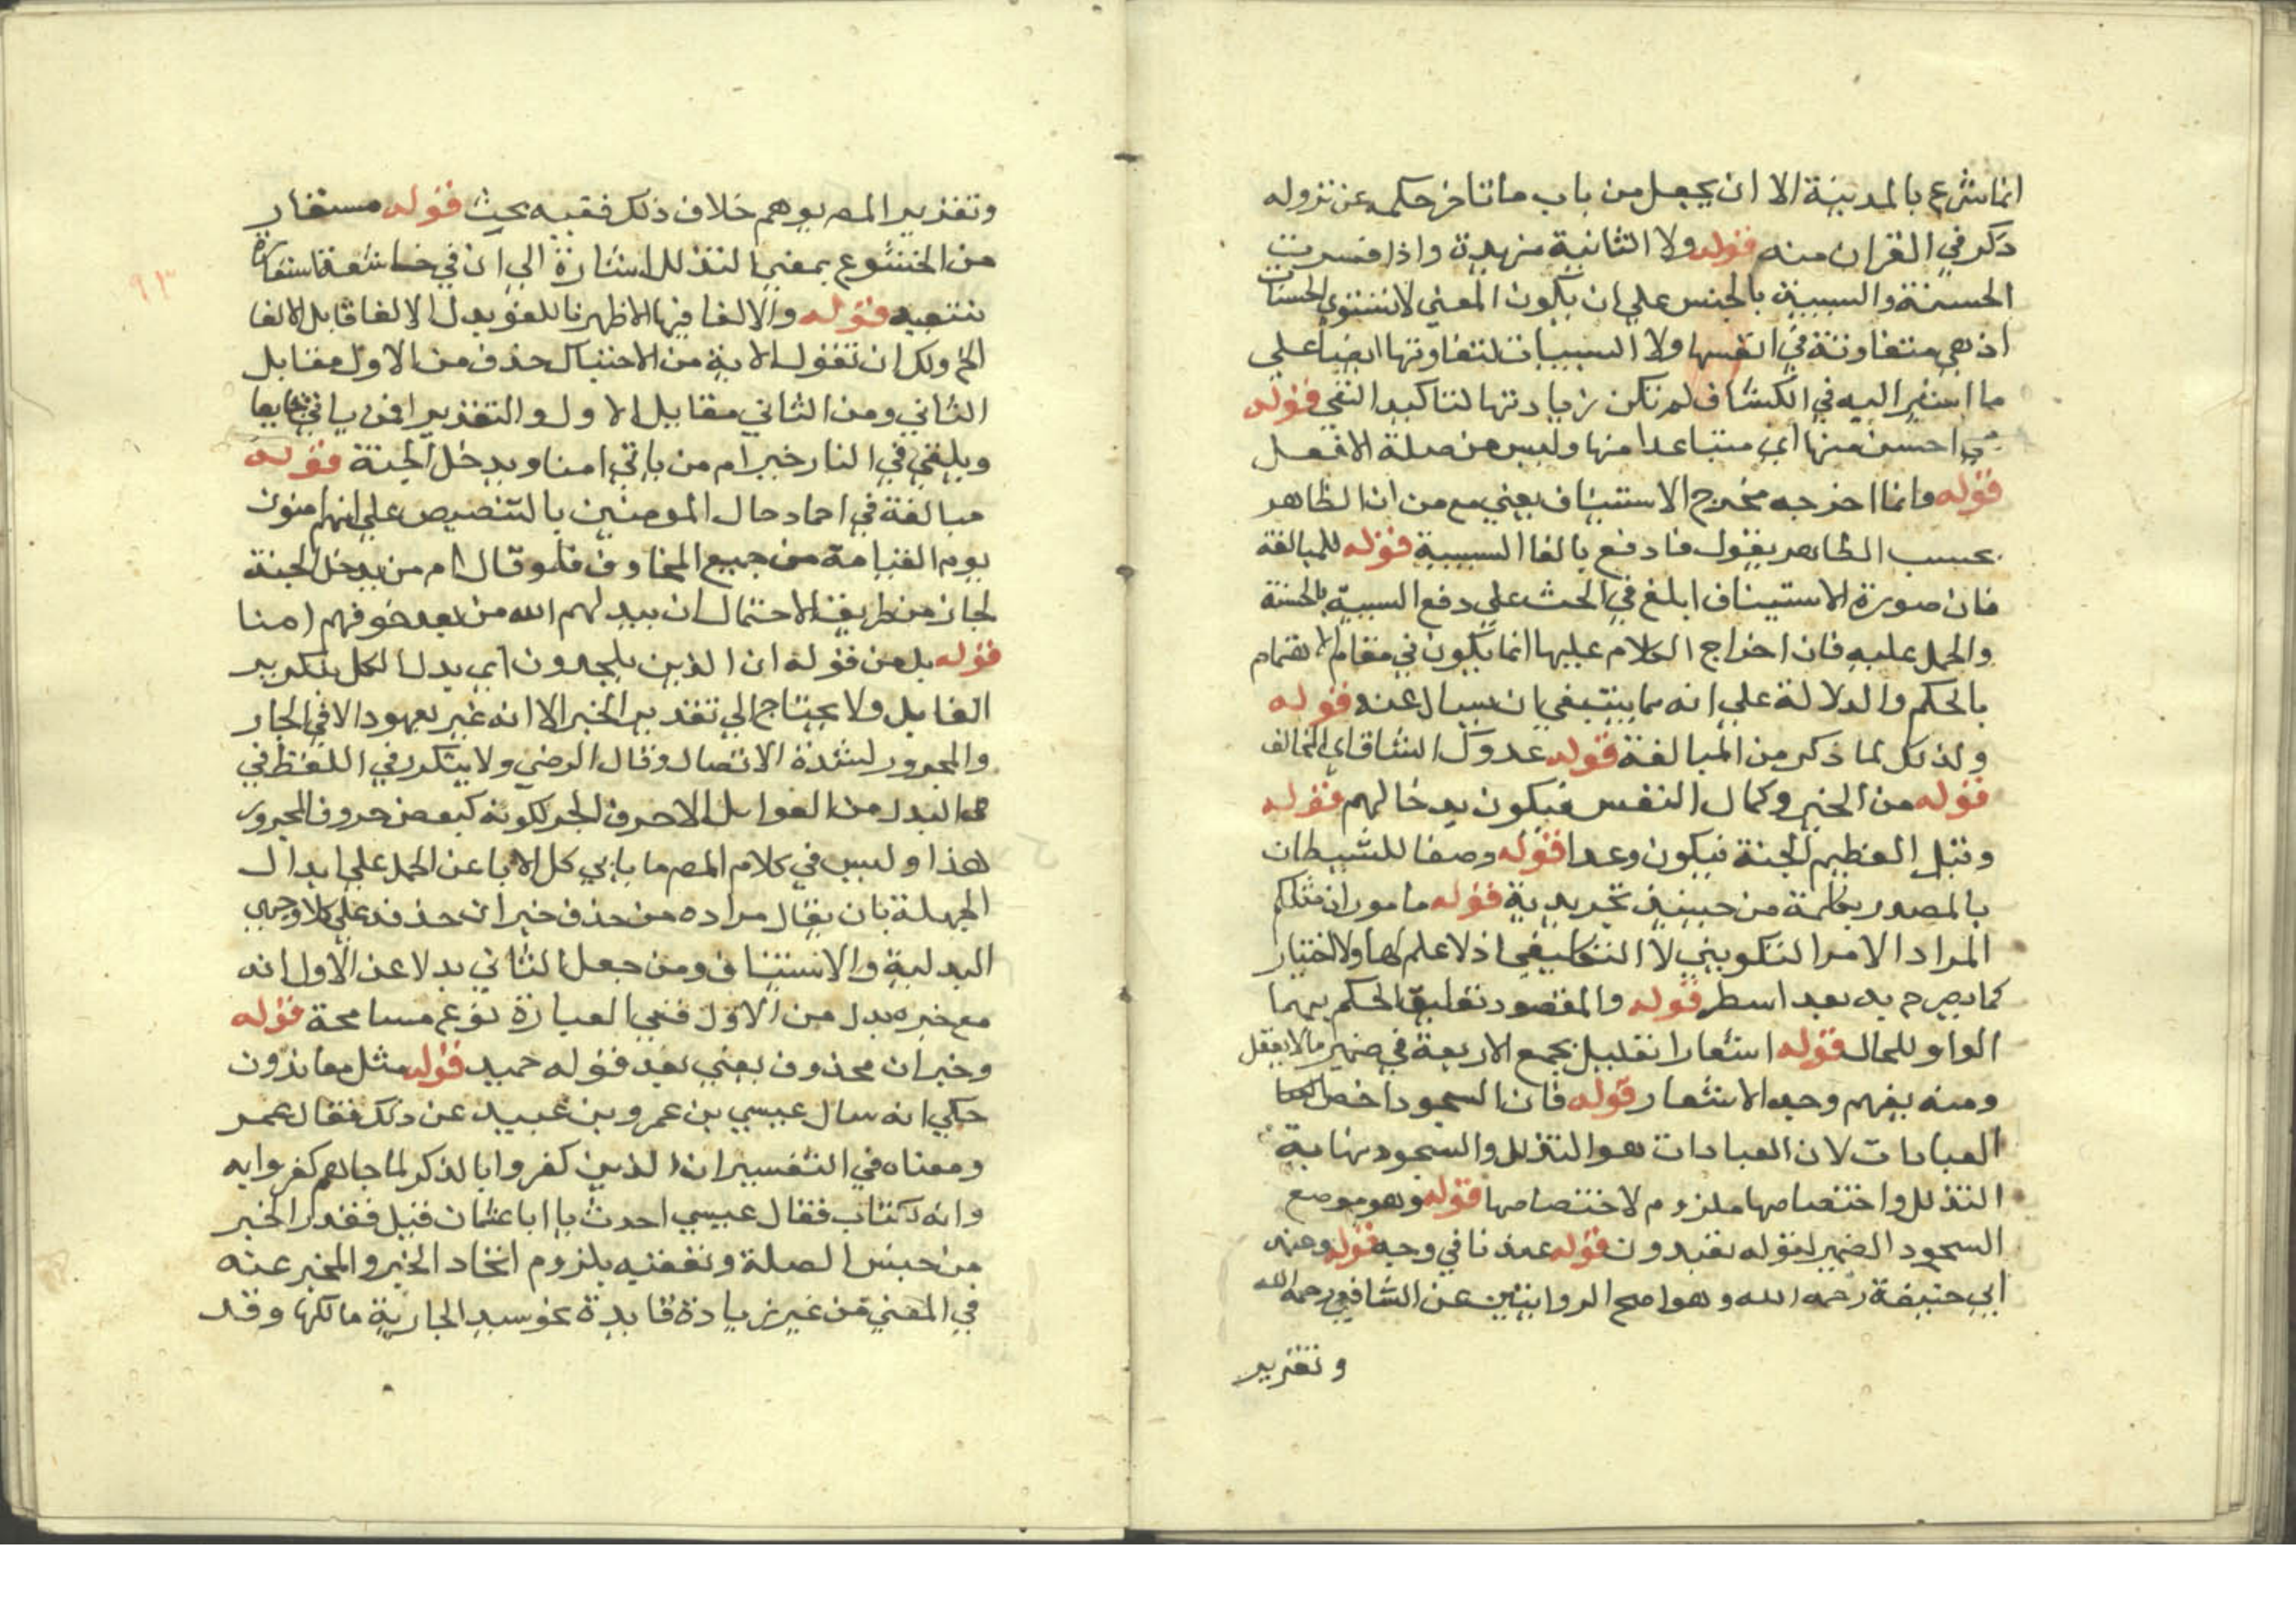 انما شرع بالمدينة الا ان يجعل من باب ما تاخر حكمه عن نزوله
ذكر في القران منه قوله ولا الثانية مزيدة واذا فسرت
الحسنة والسيية بالجنس علي ان يكون المعني لا تستوي الحسنات
اذ هي متفاوتة في انفسها ولا السييات لتفاوتها ايضا علي
ما اشير اليه في الكشاف لم تكن زيادتها لتاكيد النفي قوله
احسن منها اي متباعدا منها وليس من صلة الافعل
قوله وانما اخرجه مخرج الاستيناف يعني مع من ان الظاهر
بحسب الظاهر يقول فادفع بالفا السببية قوله للمبالغة
فان صورة الاستيناف ابلغ في الحث علي دفع السيية بالحسنة
والحمل عليه فان اخراج الكلام عليها انما يكون في مقام الاهتمام
بالحكم والدلالة علي انه مما ينبغي ان يسال عنه قوله
ولذلك لما ذكر من المبالغة قوله عدوك الشاق اي المخالف
قوله من الخير وكمال النفس فيكون مدحا لهم قوله
وقيل العظيم الجنة فيكون وعدا قوله وصفا للشيطان
بالمصدر فكلمة من حينيذ تجريدية قوله ماموران مثلكم
المراد الامر التكويني لا التكليفي اذ لا علم لها ولا اختيار
كما يصرح به بعد اسطر قوله والمقصود تعليق الحكم بهما
الواو للحال قوله اشعارا تعليل بجمع الاربعة في ضمير ما لا يعقل
ومنه يفهم وجه الاشعار قوله فان السجود اخص
العبادات لان العبادات هو التذلل والسجود نهاية
التذلل واختصاصها ملزوم لاختصاصها قوله وهو موضع
السجود الضمير لقوله تعبدون قوله عندنا في وجه قوله وعند
ابي حنيفة رحمه الله وهو اصح الروايتين عن الشافعي رحمه الله
وتقرير
وتقرير المص يوهم خلاف ذلك ففيه بحث قوله مستعار
من الخشوع بمعني التذلل اشارة الي ان في خاشعة استعارة
تبعية قوله والالقا فيها الاظهر نا للغو بدل الالقا قابل الالقا
الخ ولك ان تقول الاية من الاحتباك حذف من الاول مقابل
الثاني ومن الثاني مقابل الاول والتقدير افمن ياتي خايفا
ويلقي في النار خير ام من ياتي امنا ويدخل الجنة قوله
مبالغة في احماد حال المومنين بالتنصيص علي انهم امنون
يوم القيامة من جميع المخاوف فلو قال ام من يدخل الجنة
لجاز من طريق الاحتمال ان يبدلهم الله من بعد خوفهم امنا
قوله بدل من قوله ان الذين يلحدون اي بدل الكل بتكرير
العامل ولا يحتاج الي تقدير الخبر الا انه غير معهود الا في الجار
والمجرور لشدة الاتصال وقال الرضي ولا يتكرر في اللفظ في
البدل من العوامل الا حرف الجر لكونه كبعض حروف المجرور
هذا وليس في كلام المص ما يابي كل الابا عن الحمل علي ابدال
الجملة بان يقال مراده من حذف خبر ان حذفه علي كلا وجهي
البدلية والاستيناف ومن جعل الثاني بدلا عن الاول انه
مع خبره بدل من الاول ففي العبارة نوع مسامحة قوله
وخبر ان محذوف يعني بعد قوله حميد قوله مثل معاندون
حكي انه سال عيسي بن عمرو بن عبيد عن ذلك فقال عمر
ومعناه في التفسير ان الذين كفروا بالذكر لما جاهم كفروا به
وانه لكتاب فقال عيسي احدث يا ابا عثمان قيل فقدر الخبر
من جنس الصلة وتعقبه بلزوم اتحاد الخبر والمخبر عنه
في المعني من غير زيادة فايدة نحو سيد الجارية مالكها وقد
٩٣